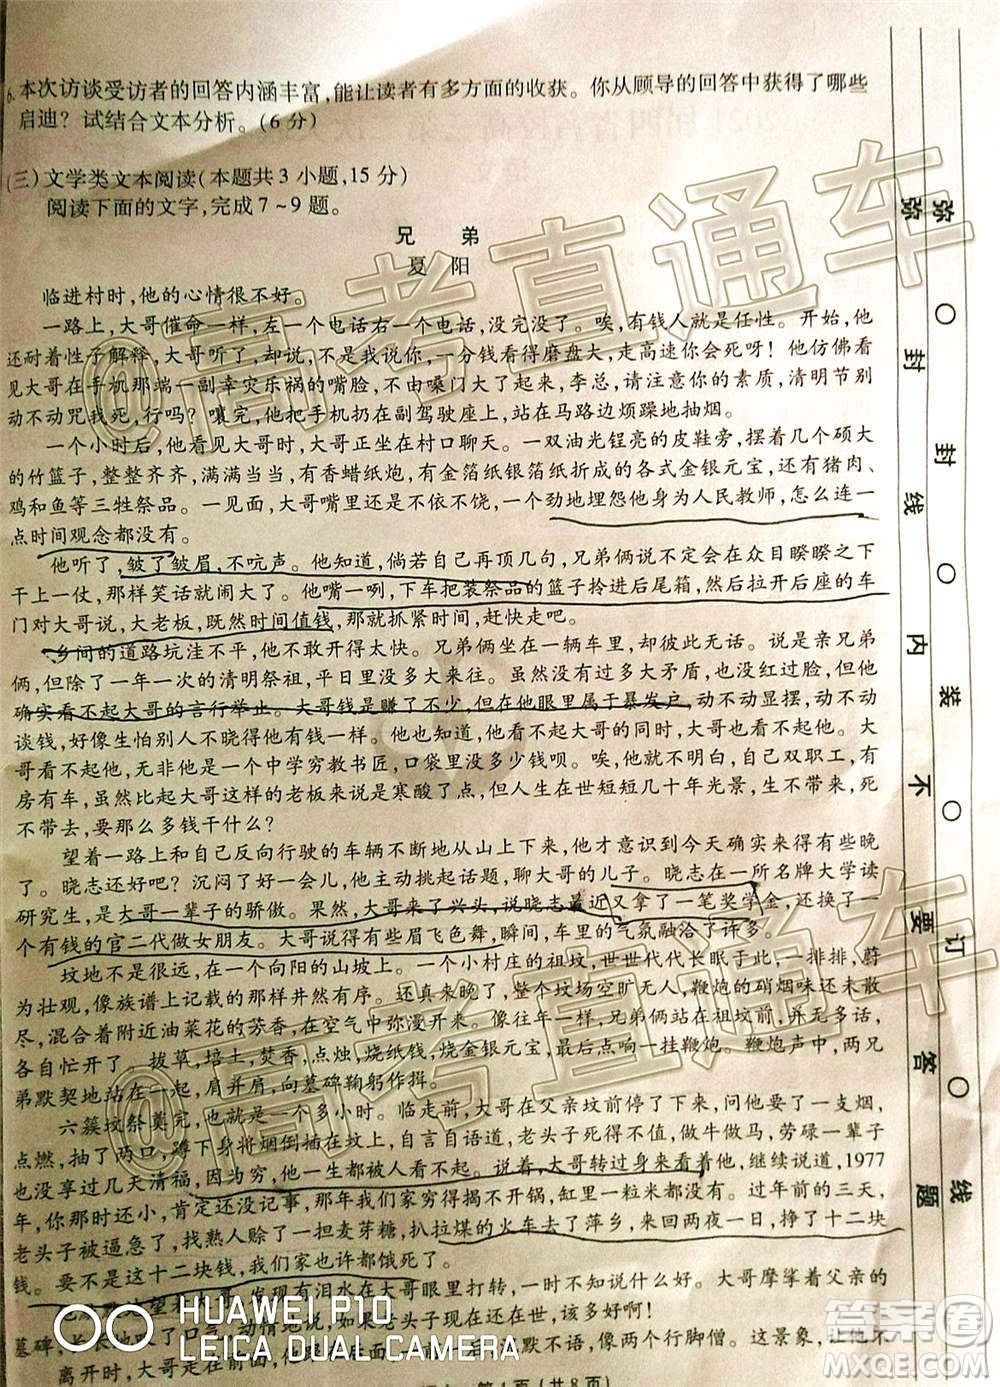 6.本次访谈受访者的回答内涵丰富,能让读者有多方面的收获。你从顾导的回答中获得了哪些
启迪?试结合文本分析。(6分)
(三)文学类文本阅读(本题共3小题,15分)
阅读下面的文字,完成7~9题。
兄 弟
夏 阳
临进村时,他的心情很不好。
一路上,大哥催命一样,左一个电话右一个电话,没完没了。唉,有钱人就是任性。开始,他
还耐着性子解释,大哥听了,却说,不就一分钱弄得磨盘大,走高速你会死呀!他仿佛看
见大哥在手机那端一副幸灾乐祸的嘴脸,不由嗓门大了起来,李总,请注意你的素质,清明节别
动不动咒我死,行吗?嚷完,他把手机扔在副驾驶座上,站在马路边烦躁地抽烟。
一个小时后,他看见大哥时,大哥正坐在村口聊天。一双油光锃亮的皮鞋旁,摆着几个硕大
的竹篮子,整整齐齐,满满当当,有香蜡纸炮,有金箔纸银箔纸折成的各式金银元宝,还有猪肉、
鸡和鱼等三牲祭品。一见面,大哥嘴里还是不依不饶,一个劲地埋怨他身为人民教师,怎么连一
点时间观念都没有。
他听了,皱了皱眉,不吭声。他知道,倘若自己再顶几句,兄弟俩说不定会在众目睽睽之下
干上一仗,那样笑话就闹大了。他嘴一咧,下车把装祭品的篮子拎进后尾箱,然后拉开后座的车
门对大哥说,大老板,既然时间值钱,那就抓紧时间,赶快走吧。
乡间的道路坑洼不平,他不敢开得太快。兄弟俩坐在一辆车里,却彼此无话。说是亲兄弟
俩,但除了一年一次的清明祭祖,平日里几乎没多大来往。虽然没有过多大矛盾,也没红过脸,但他
确实看不起大哥的言行举止。大哥钱是赚了不少,但在他眼里属于暴发户,动不动显摆,动不动
谈钱,好像生怕别人不晓得他有钱一样。他也知道,他看不起大哥的同时,大
哥看不起他,无非他是一个中学穷教书匠,口袋里没多少钱呗。唉,自己双职工,有
房有车,虽然和大哥这样的老板比是寒酸了点,但人生在世短短几十年光景,生不带来,死
不带去,要那么多钱干什么?
望着一路上和自己反向行驶的车辆不断地从山上下来,他才意识到今天确实来得有些晚
了。晓志还好吧?沉闷了好一会儿,他主动挑起话题,聊大哥的儿子。晓志在一所名牌大学读
研究生,是大哥一辈子的骄傲。果然,大哥来了兴头,说晓志最近又拿了一笔奖学金,还换了一
个有钱的官二代做女朋友。大哥说得有些眉飞色舞,瞬间,车里的气氛融洽了许多。
坟地不是很远,在一个向阳的山坡上。一个小村庄的人,世世代代长眠于此,鳞次栉比,蔚
为壮观,像族谱上记载的那样井然有序。还真是来晚了,整个坟场空旷无人,鞭炮的硝烟味还未散
尽,混合着附近油菜花的芳香,在空气中弥漫开来。像往年一样,兄弟俩站在祖坟前,
各自忙开了。拔草,培土,焚香,点烛,烧纸钱,烧金银元宝,最后点响一挂鞭炮。鞭炮声中,两兄
弟默契地站在一起,肩并肩,向墓碑鞠躬作揖。
六簇坟祭奠完,也就一个小时左右。临走前,大哥在父亲坟前停了下来,问他要了一支烟,
点燃,抽了两口,蹲下身将烟倒插在坟上,自言自语道,老头子死得不值,做牛做马,劳碌一辈子
也没享过几天清福,因为穷,他一生都被人看不起。说着,大哥转过身来看着他,继续说道,1977
年,你那时还小,肯定还没记事,那年我们家穷得揭不开锅,缸里一粒米都没有。过年的前三天,
老头子被逼急了,找熟人赊了一担麦芽糖,扒拉煤的火车去了萍乡,来回两夜一日,挣了十二块
钱。要不是这十二块钱,我们家也许都饿死了。
有泪水在大哥眼里打转,大哥摩挲着父亲的
墓碑,长长地叹了口气,动情地说,如果老头子现在还在世,该多好啊!
离开时,大哥坐在副驾驶座前面,一言不发,沉默不语,像两个行脚僧。这景象,让他不
第4页(共8页)
弥 封 线 内 不 要 答 题
弥 封 装 订 线
@高考直通车
@高考直通车
HUAWEI P10
LEICA DUAL CAMERA
答案圈
MXQE.COM